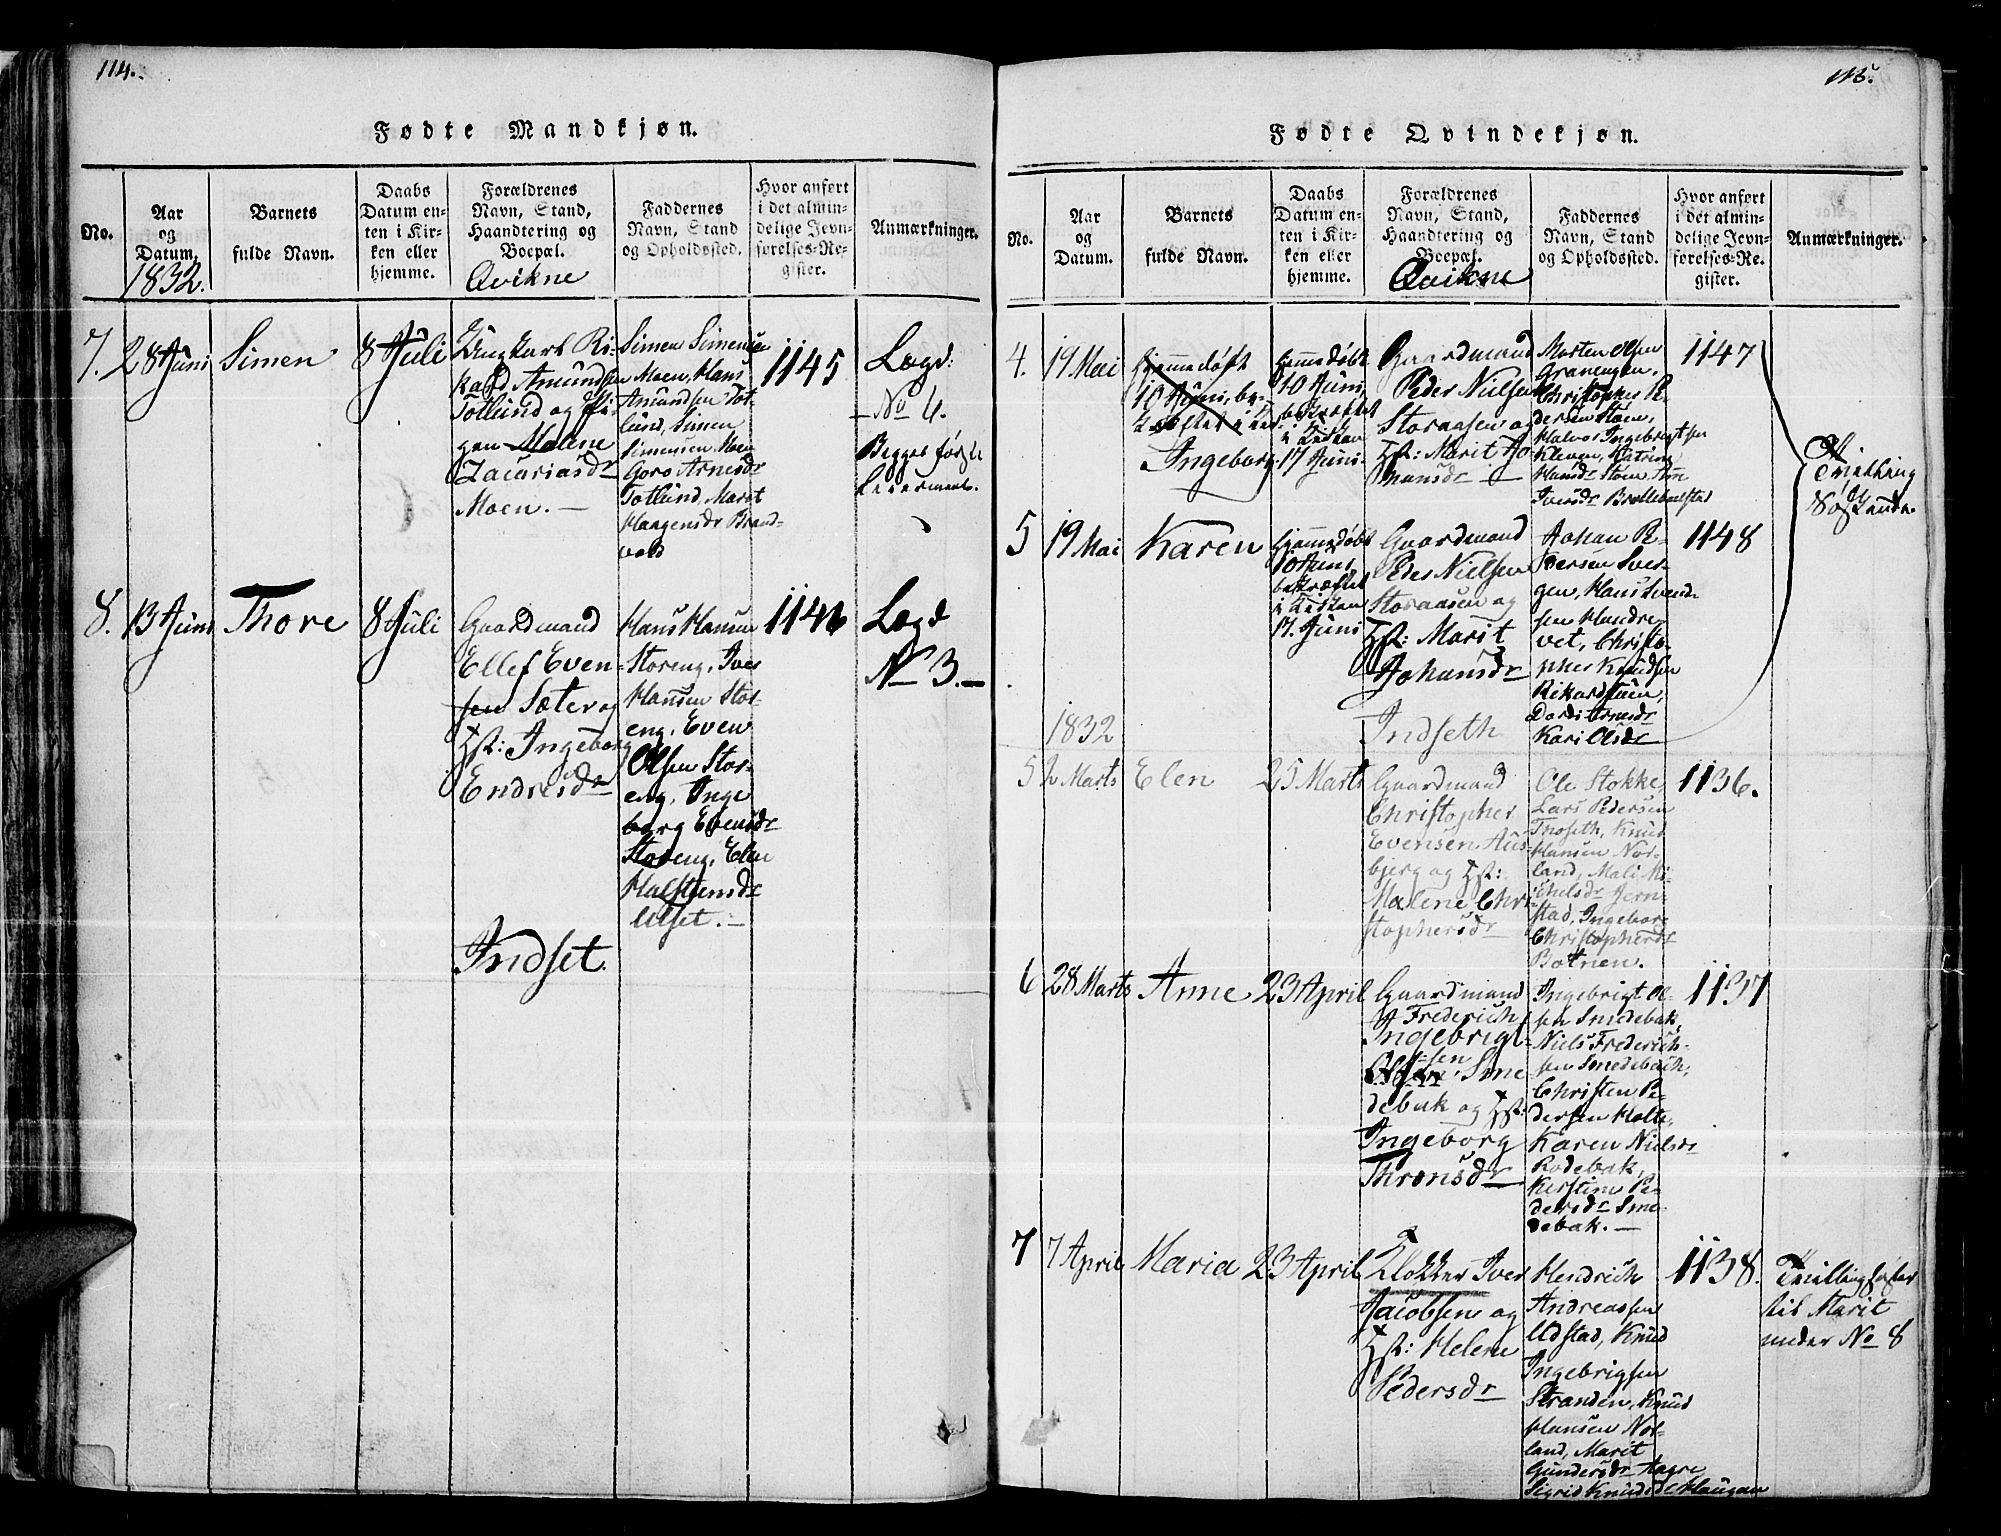 114.
Fødte Mandkjøn.
No.
Aar
og
Datum.
1832.
Barnets
fulde Navn.
Daabs
Datum en-
ten i Kir-
ken eller
hjemme.
Forældrenes
Navn, Stand,
Haandtering og
Boepæl.
Qvikne
Faddernes
Navn, Stand
og Opholdssted.
Hvor anført
i det almin-
delige Jevn-
førelses-Re-
gister.
Anmærkninger.
7.
28 Juni
Simen
8 Juli
Ungkarl Ri-
kard Amundsen
Totlund og Pi-
gen Malene
Zacariasdr
Moen. —
Simen Simensen
Moen, Hans
Amundsen Tot-
lund, Simen
Simensen Moen
Goro Arnesdr
Totlund, Marit
Haagensdr Brand-
vold
1145
Lægd:
No 6.
Begges første
Leiermaal.
8.
13 Juni
Thore
8 Juli
Gaardmand
Ellef Even-
sen Sæter og
Hst: Ingeborg
Endresdr
Hans Hansen
Storeng, Iver
Hansen Stor-
eng, Even
Olsen Stor-
eng, Inge
borg Evensdr
Storeng, Elen
Halstensdr
Ulset. —
1146
Lægd
No 3. —
Indset.
115.
Fødte Qvindekjøn.
No.
Aar
og
Datum.
Barnets
fulde Navn.
Daabs
Datum en-
ten i Kir-
ken eller
hjemme.
Forældrenes
Navn, Stand,
Haandtering og
Boepæl.
Qvikne
Faddernes
Navn, Stand
og Opholdssted.
Hvor anført
i det almin-
delige Jevn-
førelses-Re-
gister.
Anmærkninger.
4.
19 Mai
Hjemmedøbt
10 Juni, be-
kræftet i
Ingeborg
Hjemmedøbt
10 Juni,
bekræftet
i Kirken
17 Juni.
Gaardmand
Peder Nielsen
Storaasen og
Hst: Marit Jo
hansdr —
Morten Olsen
Granengen,
Christopher Pe-
dersen Støen,
Halvor Ingebrigtsen
Kleven, Katrine
Hansdr Støen, Ane
Iversdr
1147
Tvilling
Søskende.
5
19 Mai
Karen
Hjemmedøbt
10 Juni
bekræftet
i Kirken
17. Juni
Gaardmand
Peder Nielsen
Storaasen og
Hst: Marit
Johansdr
Johan Pe-
dersen Sver-
gen, Hans Svend-
sen
vet, Christo-
pher Knudsen
Rikardstuen,
Dordi Arnesdr
Kari Olsdr
1148
1832
Indseth
5
2 Marts
Elen
25 Marts
Gaardmand
Christopher
Evensen Aus-
bjerg og Hst:
Malene Chri-
stophersdr
Ole Stokke,
Lars Pedersen
Troseth, Knud
Hansen Nor-
land, Mali Mi-
chelsdr Jern-
stad, Ingeborg
Christophersdr
Botnen.
1136.
6
28 Marts
Anne
23 April
Gaardmand
Frederich
Ingebrigt-
sen
Sme
debak og Hst:
Ingeborg
Thronsdr
Ingebrigt Ol-
sen Smedebak,
Niels Frederich-
sen Smedebach,
Christen Pe-
dersen Holte,
Karen Nielsdr
Rodebak,
Kerstine Pe-
dersdr Sme-
debak. —
1137
7
7 April
Maria
23 April
Klokker Iver
Jacobsen og
Hst: Helene
Pedersdr
Hendrich
Andreassen
Udstad, Knud
Ingebrigsen
Stranden, Knud
Hansen Nor-
land, Marit
Gundersdr Aagre
Sigrid Knudsdr Haugan
1138.
Tvillingsøster
til Marit
under No 8